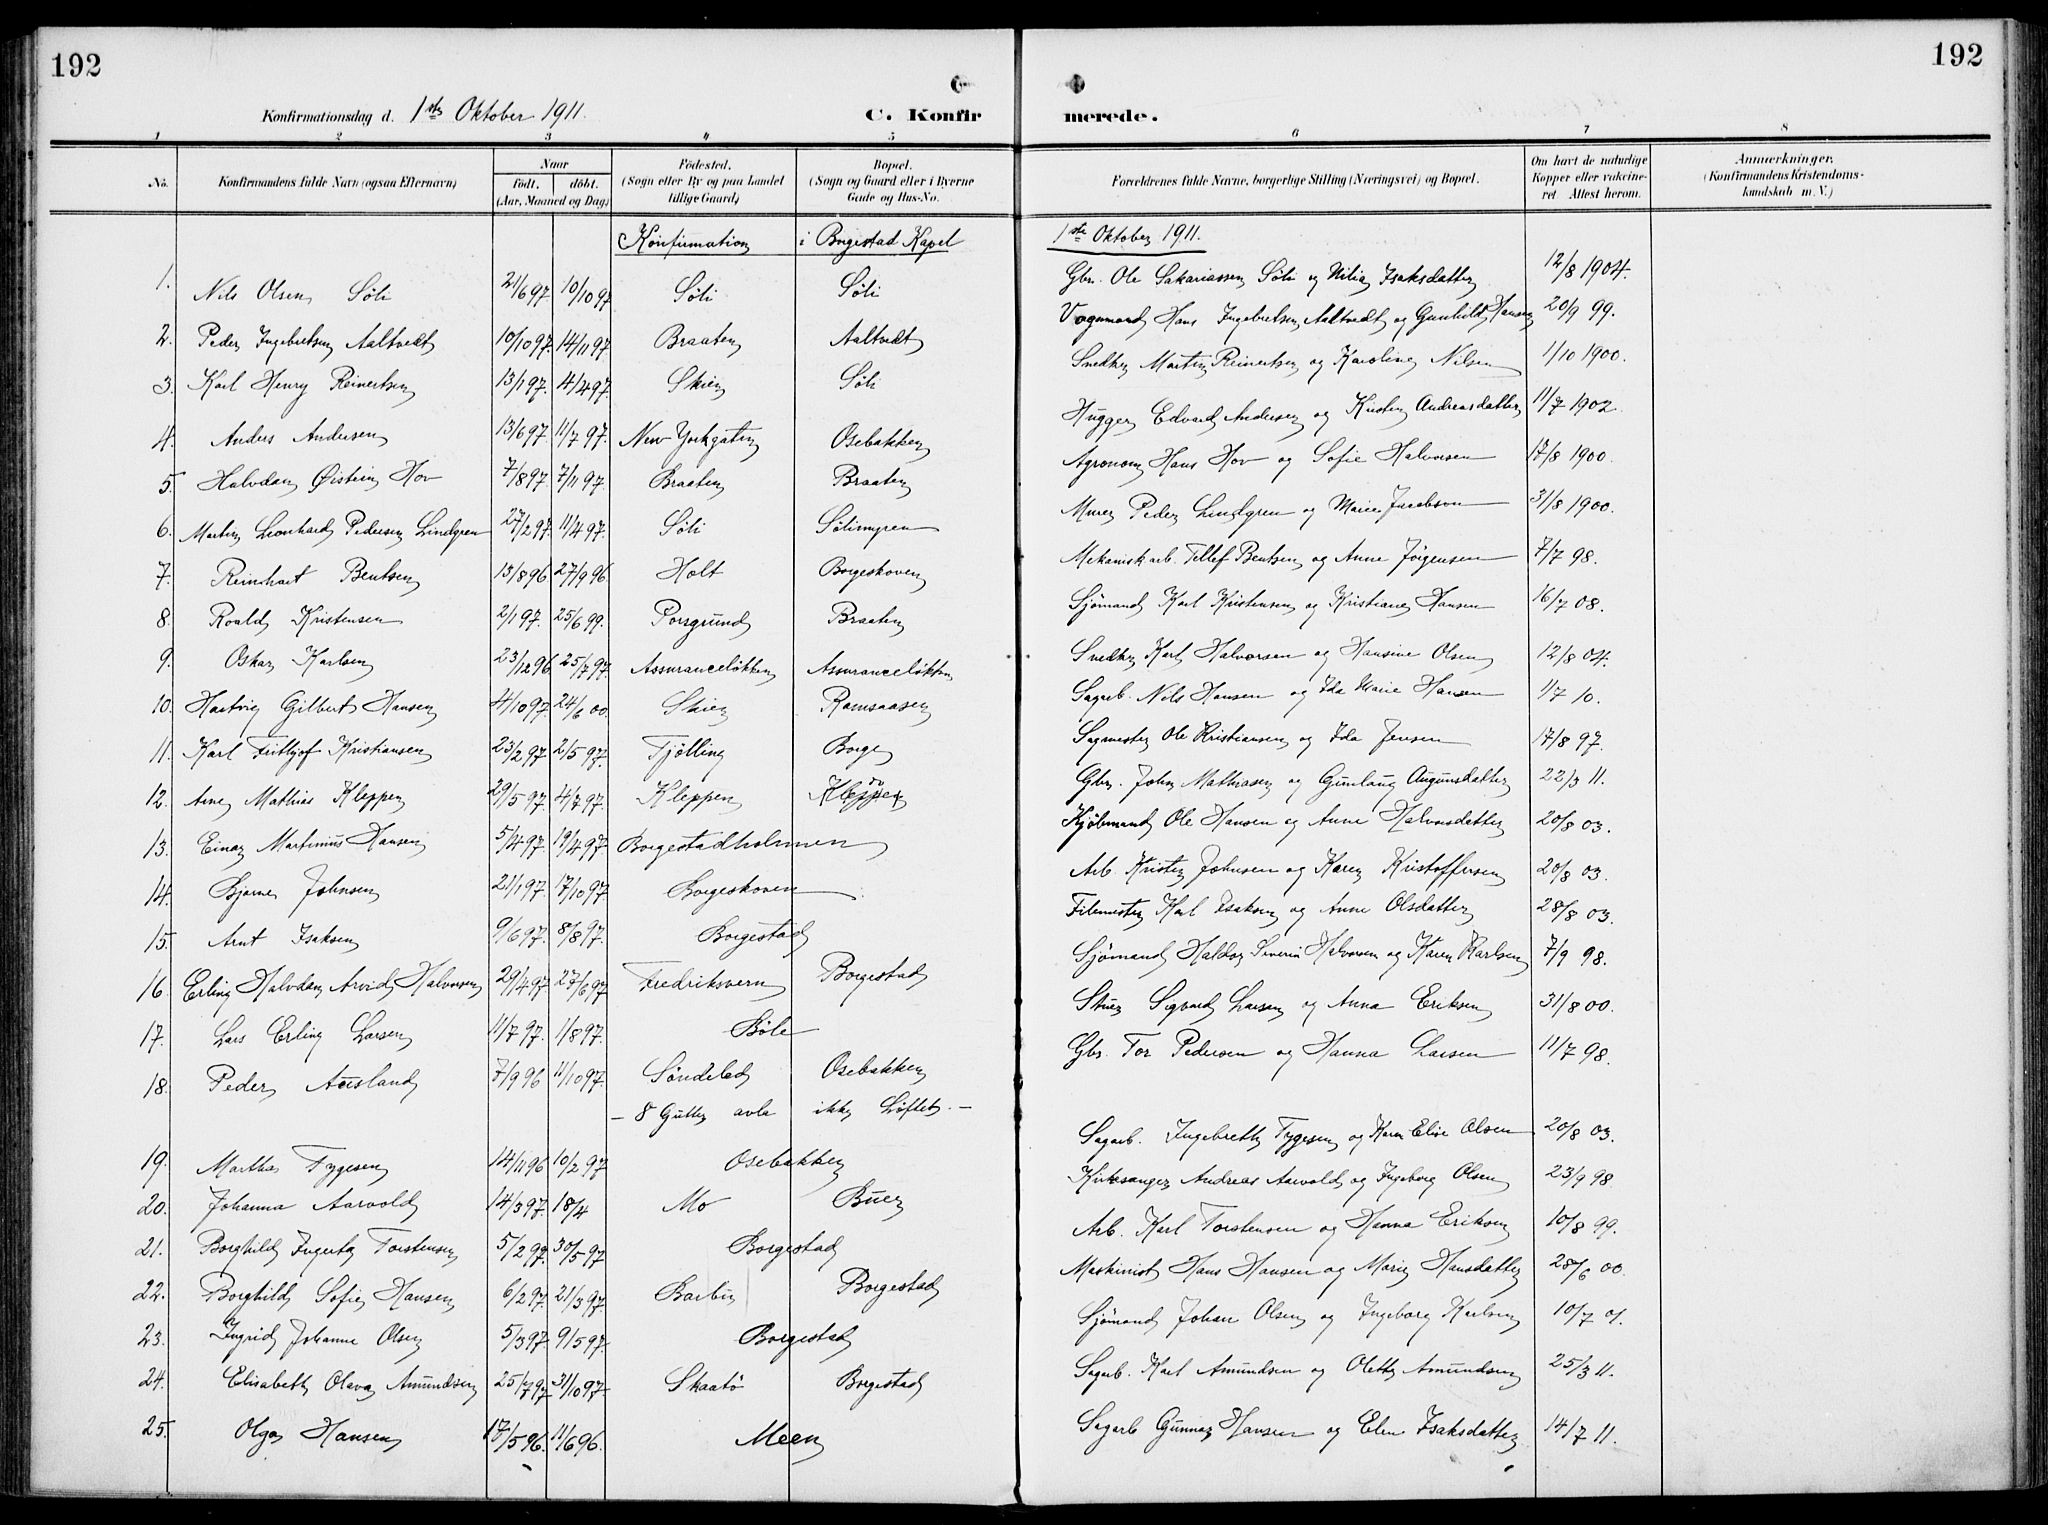 192
192
Konfirmationsdag d. 1ste Oktober 1911.
C. Konfirmerede.
1 2 3 4 5 6 7 8
No.
Konfirmandens fulde Navn (ogsaa Efternavn)
Naar
født. døbt.
(Aar, Maaned og Dag)
Fødested.
(Sogn eller By og paa Landet
tillige Gaard)
Bopæl.
(Sogn og Gaard eller i Byerne
Gade og Hus-No.
Forældrenes fulde Navne, borgerlige Stilling (Næringsvei) og Bopæl.
Om havt de naturlige
Kopper eller vakcine-
ret Attest herom.
Anmærkninger.
(Konfirmandens Kristendoms-
kundskab m. V.)
Konfirmation i Borgestad Kapel 1ste Oktober 1911.
1. Nils Olsen Søli 21/6 97 10/10 97 Søli Søli Gbr. Ole Sakariassen Søli og Nilia Isaksdatter 12/8 1904.
2. Peder Ingebretsen Aaltvedt 10/10 97. 14/11 97 Braaten Aaltvedt Vognmand Hans Ingebretsen Aaltvedt og Gunhild Hansen 20/9 99.
3. Karl Henry Reinertsen 13/1 97. 4/4 97. Skien Søli Snedker Martin Reinertsen og Karoline Nilsen 1/10 1900.
4. Anders Andersen 13/6 97. 11/7 97. New Yorkgaten Osebakken Hugger Edvard Andersen og Kirsten Andreasdatter 11/7 1902.
5. Halvdan Øistein Hov 7/8 97. 7/11 97. Braaten Braaten Agronom Hans Hov og Sofie Halvorsen 17/8 1900.
6. Martin Leonhard Pedersen Lindgren 27/2 97. 11/4 97. Søli Sølimyren Murer Peder Lindgren og Marie Jacobson 31/8 1900.
7. Reinhart Bentsen 13/8 96 27/9 96 Holt Borgeskoven Mekanisk arb. Tellef Bentsen og Anne Jörgensen 7/7 98.
8. Roald Kristensen 2/1 97. 25/6 99. Porsgrund Braaten Sjømand Karl Kristensen og Kristiane Hansen 16/7 08.
9. Oskar Karlsen 23/12 96 25/7 97. Assuranceløkken Assuranceløkken Snedker Karl Halvorsen og Hansine Olsen 12/8 04.
10. Hartvig Gilbert Hansen 4/10 97. 24/6 00. Skien Ramsaasen Sagarb. Nils Hansen og Ida Marie Hansen 1/7 10.
11. Karl Frithjof Kristiansen 23/2 97 2/5 97. Tjølling Borge Sagmester Ole Kristiansen og Ida Jensen 17/8 97.
12. Arne Mathias Kleppen 29/5 97. 4/7 97. Kleppen Gbr. John Mathiasen og Gunlaug Augunsdatter 22/3 11.
13. Einar Martinius Hansen 5/4 97. 19/4 97 Borgestadholmen Kjøbmand Ole Hansen og Anne Halvorsdatter 20/8 03.
14. Bjarne Johnsen 21/1 97. 17/10 97. Borgeskoven Arb. Kristen Johnsen og Karen Kristoffersen 20/8 03.
15. Arnt Isaksen 9/6 97. 8/8 97. Borgestad Filemester Karl Isaksen og Anne Olsdatter 28/8 03.
16. Erling Halvdan Arvid Halvorsen 29/4 97 27/6 97 Fredriksvern Borgestad Sjømand Haldor Severin Halvorsen og Karen Karlsen 7/9 98.
17. Lars Erling Larsen 11/7 97. 1/8 97. Bøle Stuer Sigvard Larsen og Anna Eriksen 31/8 00.
18. Peder Ausland 7/9 96 11/10 97. Søndeled Osebakken Gbr. Tor Pedersen og Hanna Larsen 11/7 98.
– 8 Gutter avla ikke Løftet. –
19. Martha Tygesen 14/11 96 10/2 97 Osebakken Sagarb. Ingebreth Tygesen og Karen Elise Olsen 20/8 03.
20. Johanna Aarvold 14/3 97. 18/4 Mo Buer Kirkesanger Andreas Aarvold og Ingeborg Olsen 23/9 98.
21. Borghild Ingerta Torstensen 5/2 97. 30/5 97 Borgestad Arb. Karl Torstensen og Hanna Eriksen 10/8 99.
22. Borghild Sofie Hansen 6/2 97. 21/3 97. Barbu Borgestad Maskinist Hans Hansen og Marie Hansdatter 28/6 00.
23. Ingrid Johanne Olsen 5/3 97. 9/5 97. Borgestad Sjømand Johan Olsen og Ingeborg Karlsen 10/7 01.
24. Elisabeth Olava Amundsen 25/7 97 31/10 97. Skaatø Borgestad Sagarb. Karl Amundsen og Olette Amundsen 25/3 11.
25. Olga Hansen 17/5 96. 11/6 96. Meen Sagarb Gunnar Hansen og Elen Isaksdatter 14/7 11.